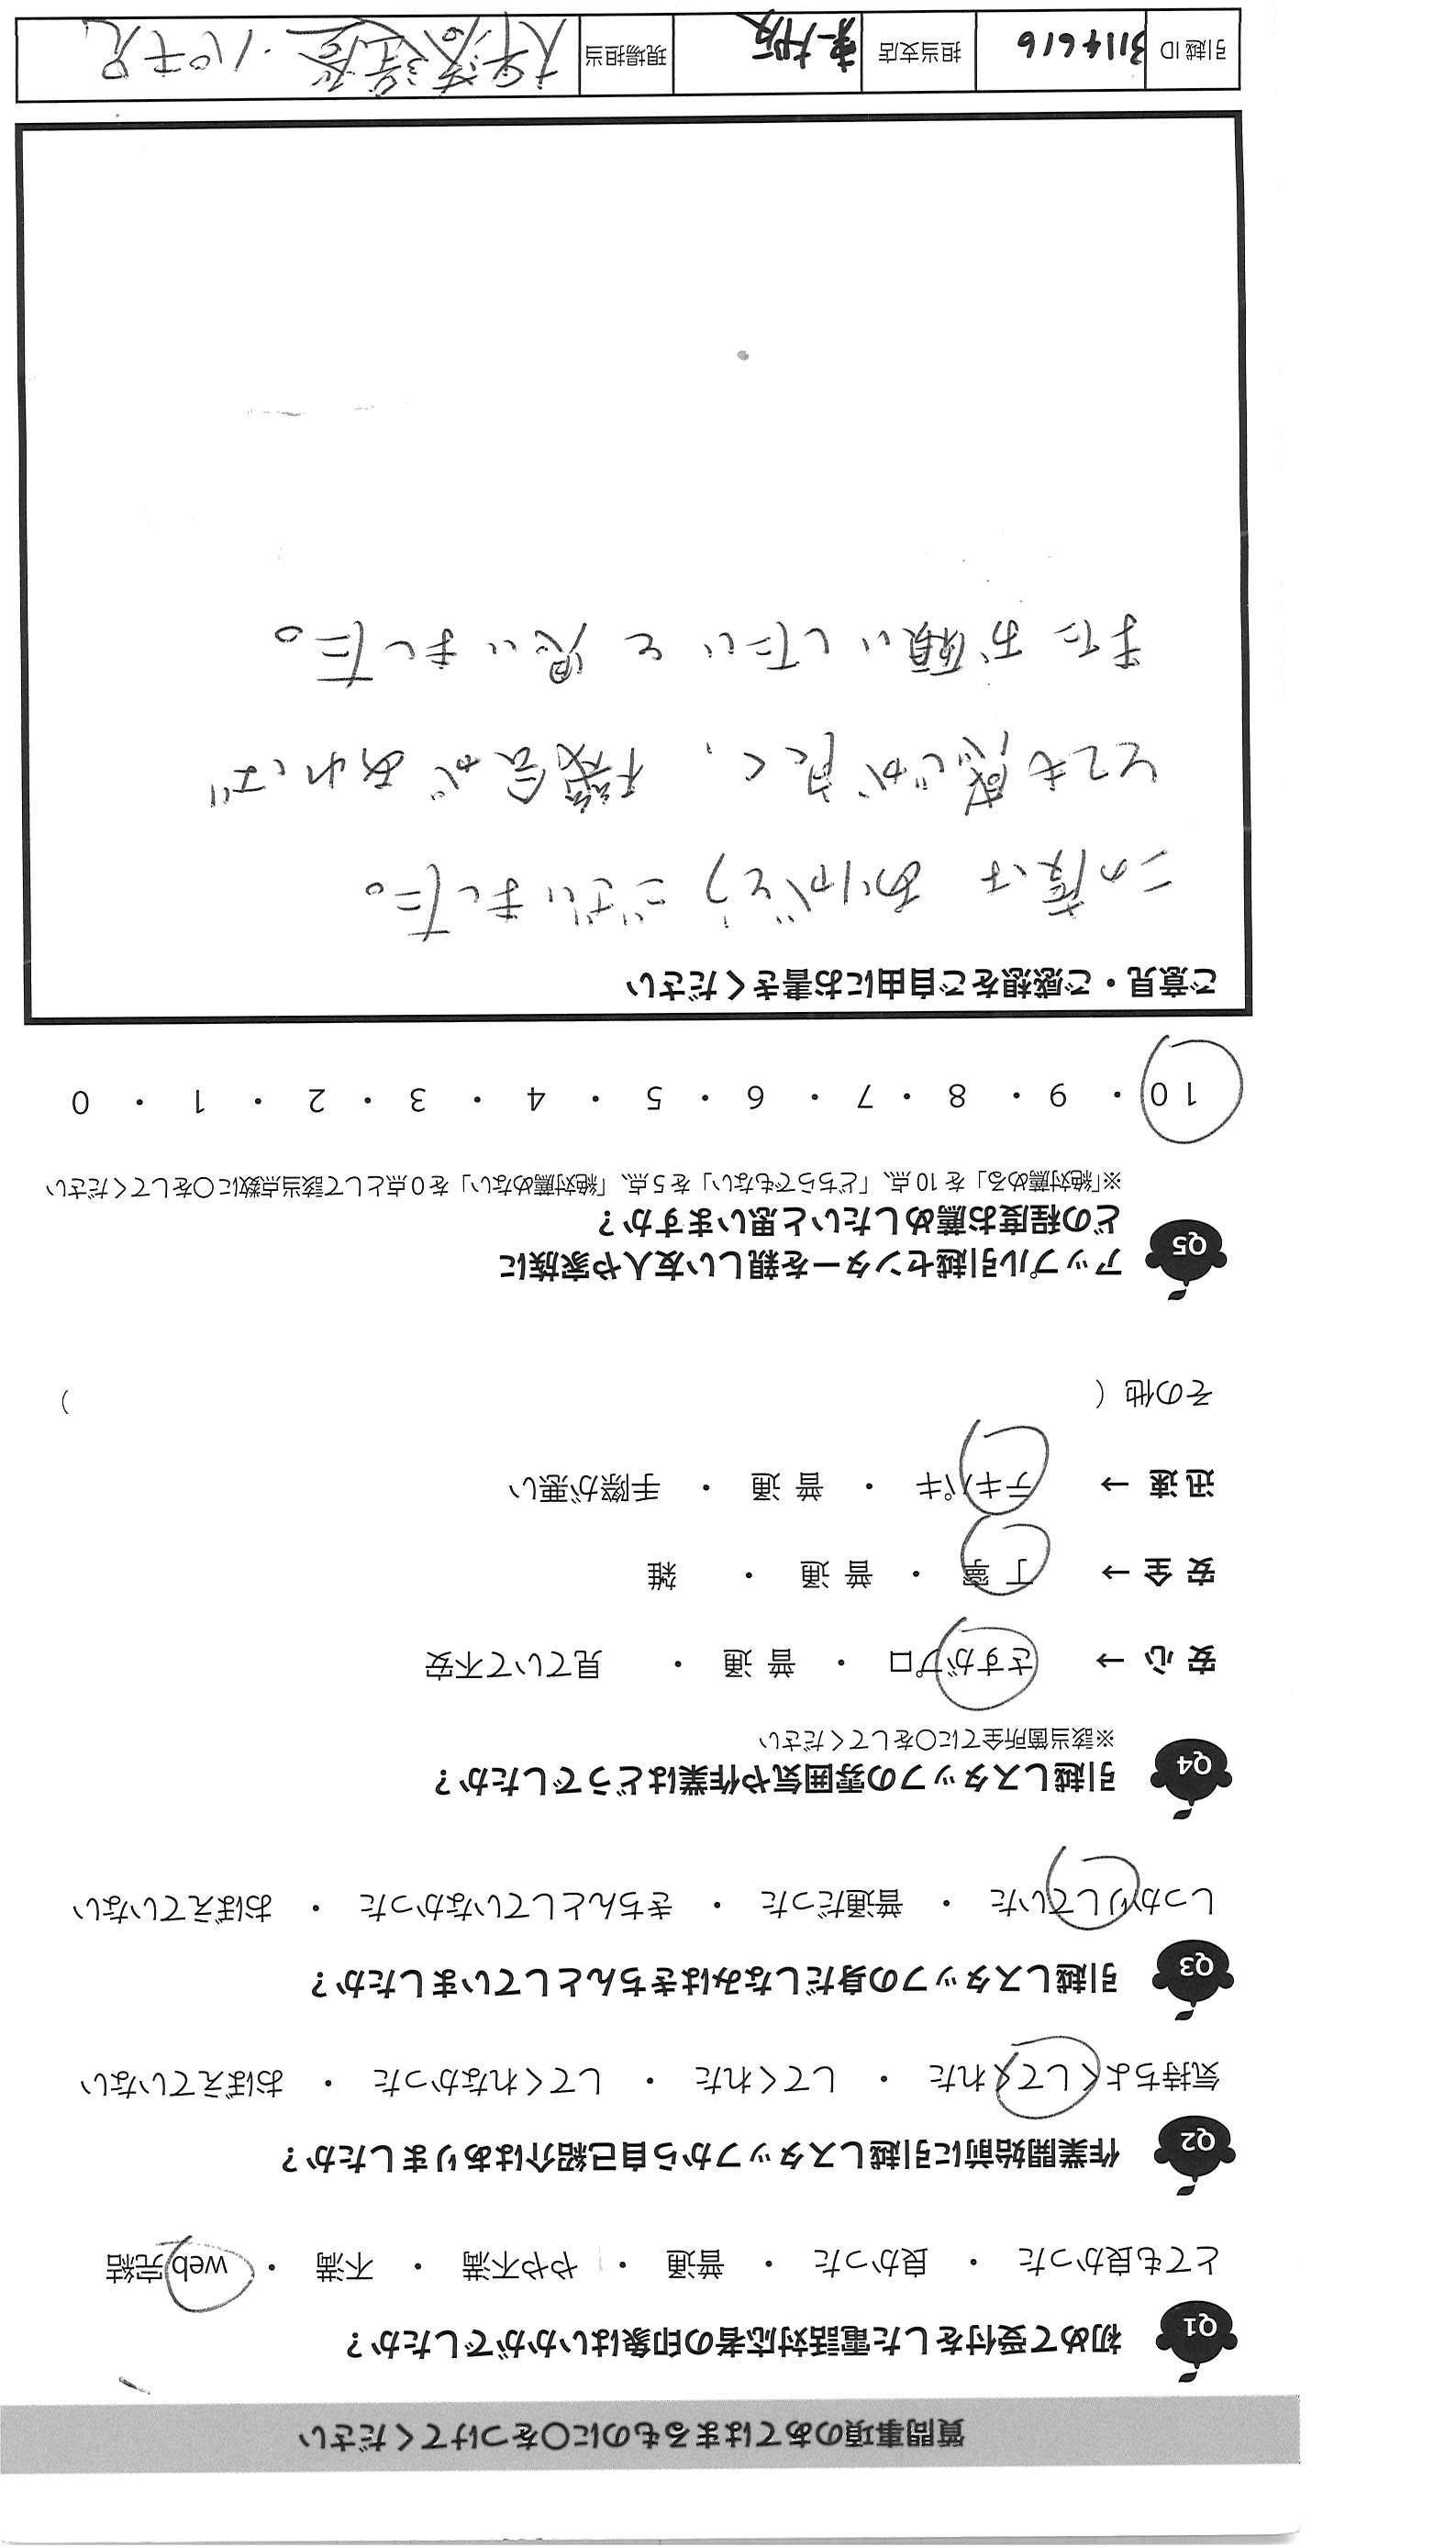 質問事項のあてはまるものに〇をつけてください
Q1 初めて受付をした電話対応者の印象はいかがでしたか？
とても良かった ・ 良かった ・ 普通 ・ やや不満 ・ 不満 ・ web完結
Q2 作業開始前に引越しスタッフから自己紹介はありましたか？
気持ちよくしてくれた ・ してくれた ・ してくれなかった ・ おぼえていない
Q3 引越しスタッフの身だしなみはきちんとしていましたか？
しっかりしていた ・ 普通だった ・ きちんとしていなかった ・ おぼえていない
Q4 引越しスタッフの雰囲気や作業はどうでしたか？
※該当箇所全てに〇をしてください
安心 → さすがプロ ・ 普通 ・ 見ていて不安
安全 → 丁寧 ・ 普通 ・ 雑
迅速 → テキパキ ・ 普通 ・ 手際が悪い
その他（ ）
Q5 アップル引越センターを親しい友人や家族に
どの程度お薦めしたいと思いますか？
※「絶対薦める」を10点、「どちらでもない」を5点、「絶対薦めない」を0点として該当点数に〇をしてください
10 ・ 9 ・ 8 ・ 7 ・ 6 ・ 5 ・ 4 ・ 3 ・ 2 ・ 1 ・ 0
ご意見・ご感想をご自由にお書きください
この度は ありがとうございました。
とても感じが良く、機会があれば
またお願いしたいと思いました。
引越ID 3114616 担当支店 現場担当